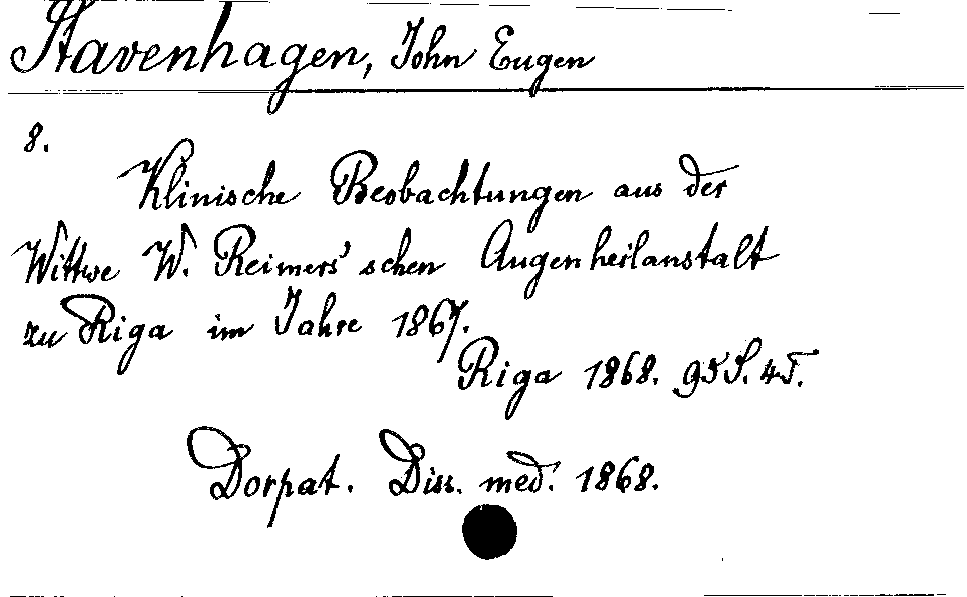 Stavenhagen, John Eugen
8.
Klinische Beobachtungen aus der
Wittwe W. Reimers'schen Augenheilanstalt
zu Riga im Jahre 1867.
Riga 1868. 95 S. 4 T.
Dorpat. Diss. med. 1868.